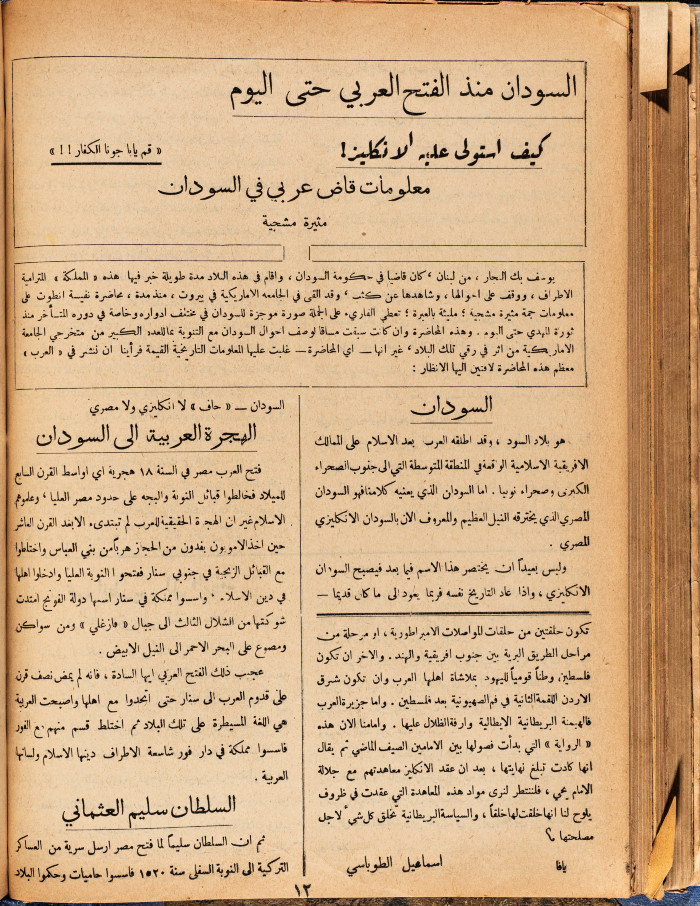 السودان منذ الفتح العربي حتى اليوم
كيف استولى عليه الانكليز!
« قم يابا جونا الكفار !! »
معلومات قاض عربي في السودان
مثيرة مشجية
يوسف بك النجار ، من لبنان ، كان قاضيا في حكومة السودان ، واقام في هذه البلاد مدة طويلة خبر فيها هذه « المملكة » المترامية
الاطراف ، ووقف على احوالها ، وشاهدها عن كثب ، وقد القى في الجامعه الاميركية في بيروت ، منذ مدة ، محاضرة نفيسة انطوت على
معلومات جمة مثيرة مشجية ؛ مليئة بالعبرة ؛ تعطي القارىء على الجملة صورة موجزة للسودان في مختلف ادواره وخاصة في دوره المتأخر منذ
ثورة المهدي حتى اليوم . وهذه المحاضرة وان كانت سيقت مساقا لوصف احوال السودان مع التنوية بما للعدد الكبير من متخرجي الجامعة
الاميركية من اثر في رقي تلك البلاد ، غير انها — اي المحاضرة — غلبت عليها المعلومات التاريخية القيمة فرأينا ان ننشر في « العرب »
معظم هذه المحاضرة لافتين اليها الانظار :
السودان
هو بلاد السود ، وقد اطلقه العرب بعد الاسلام على الممالك
الافريقية الاسلامية الواقعة في المنطقة المتوسطة التي الى جنوب الصحراء
الكبرى وصحراء نوبيا . اما السودان الذي يعنيه كلامنا فهو السودان
المصري الذي يخترقه النيل العظيم والمعروف الان بالسودان الانكليزي
المصري .
وليس بعيداً ان يختصر هذا الاسم فيما بعد فيصبح السودان
الانكليزي ، واذا عاد التاريخ نفسه فربما يعود الى ما كان قديما —
تكون حلقتين من حلقات المواصلات الامبراطورية ، او مرحلة من
مراحل الطريق البرية بين جنوب افريقية والهند . والاخر ان تكون
فلسطين وطناً قومياً لليهود بملاشاة اهلها العرب وان تكون شرق
الاردن اللقمة الثانية في فم الصهيونية بعد فلسطين . واما جزيرة العرب
فالهيمنة البريطانية الايطالية وارفة الظلال عليها . وامامنا الان هذه
« الرواية » التي بدأت فصولها بين الامامين الصيف الماضي ثم يقال
انها كادت تبلغ نهايتها ، بعد ان عقد الانكليز معاهدتهم مع جلالة
الامام يحي ، فلننتظر لنرى مواد هذه المعاهدة التي عقدت في ظروف
يلوح لنا انها خلقت لها خلقاً ، والسياسة البريطانية تخلق كل شيء لاجل
مصلحتها ؟
يافا اسماعيل الطوباسي
السودان — « حاف » لا انكليزي ولا مصري
الهجرة العربية الى السودان
فتح العرب مصر في السنة ١٨ هجرية اي اواسط القرن السابع
للميلاد فخالطوا قبائل النوبة والبجه على حدود مصر العليا ؛ وعلموهم
الاسلام غير ان الهجرة الحقيقية للعرب لم تبتدىء الا بعد القرن العاشر
حين اخذ الامويون يفدون من الحجاز هرباً من بني العباس واختلطوا
مع القبائل الزنجية في جنوبي سنار ففتحوا النوبة العليا وادخلوا اهلها
في دين الاسلام . واسسوا مملكة في سنار اسمها دولة الفونج امتدت
شوكتها من الشلال الثالث الى جبال « فازغلي » ومن سواكن
ومصوع على البحر الاحمر الى النيل الابيض .
عجيب ذلك الفتح العربي ايها السادة ، فانه لم يمض نصف قرن
على قدوم العرب الى سنار حتى اتحدوا مع اهلها واصبحت العربية
هي اللغة المسيطرة على تلك البلاد ثم اختلط قسم منهم مع الفور
فاسسوا مملكة في دار فور شاسعة الاطراف دينها الاسلام ولسانها
العربية .
السلطان سليم العثماني
ثم ان السلطان سليماً لما فتح مصر ارسل سرية من العساكر
التركية الى النوبة السفلى سنة ١٥٢٠ فاسسوا حاميات وحكموا البلاد
١٢